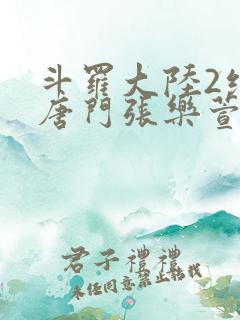 斗羅大陸2絕
唐門張樂萱
君子禮禮
未經同意禁止轉載